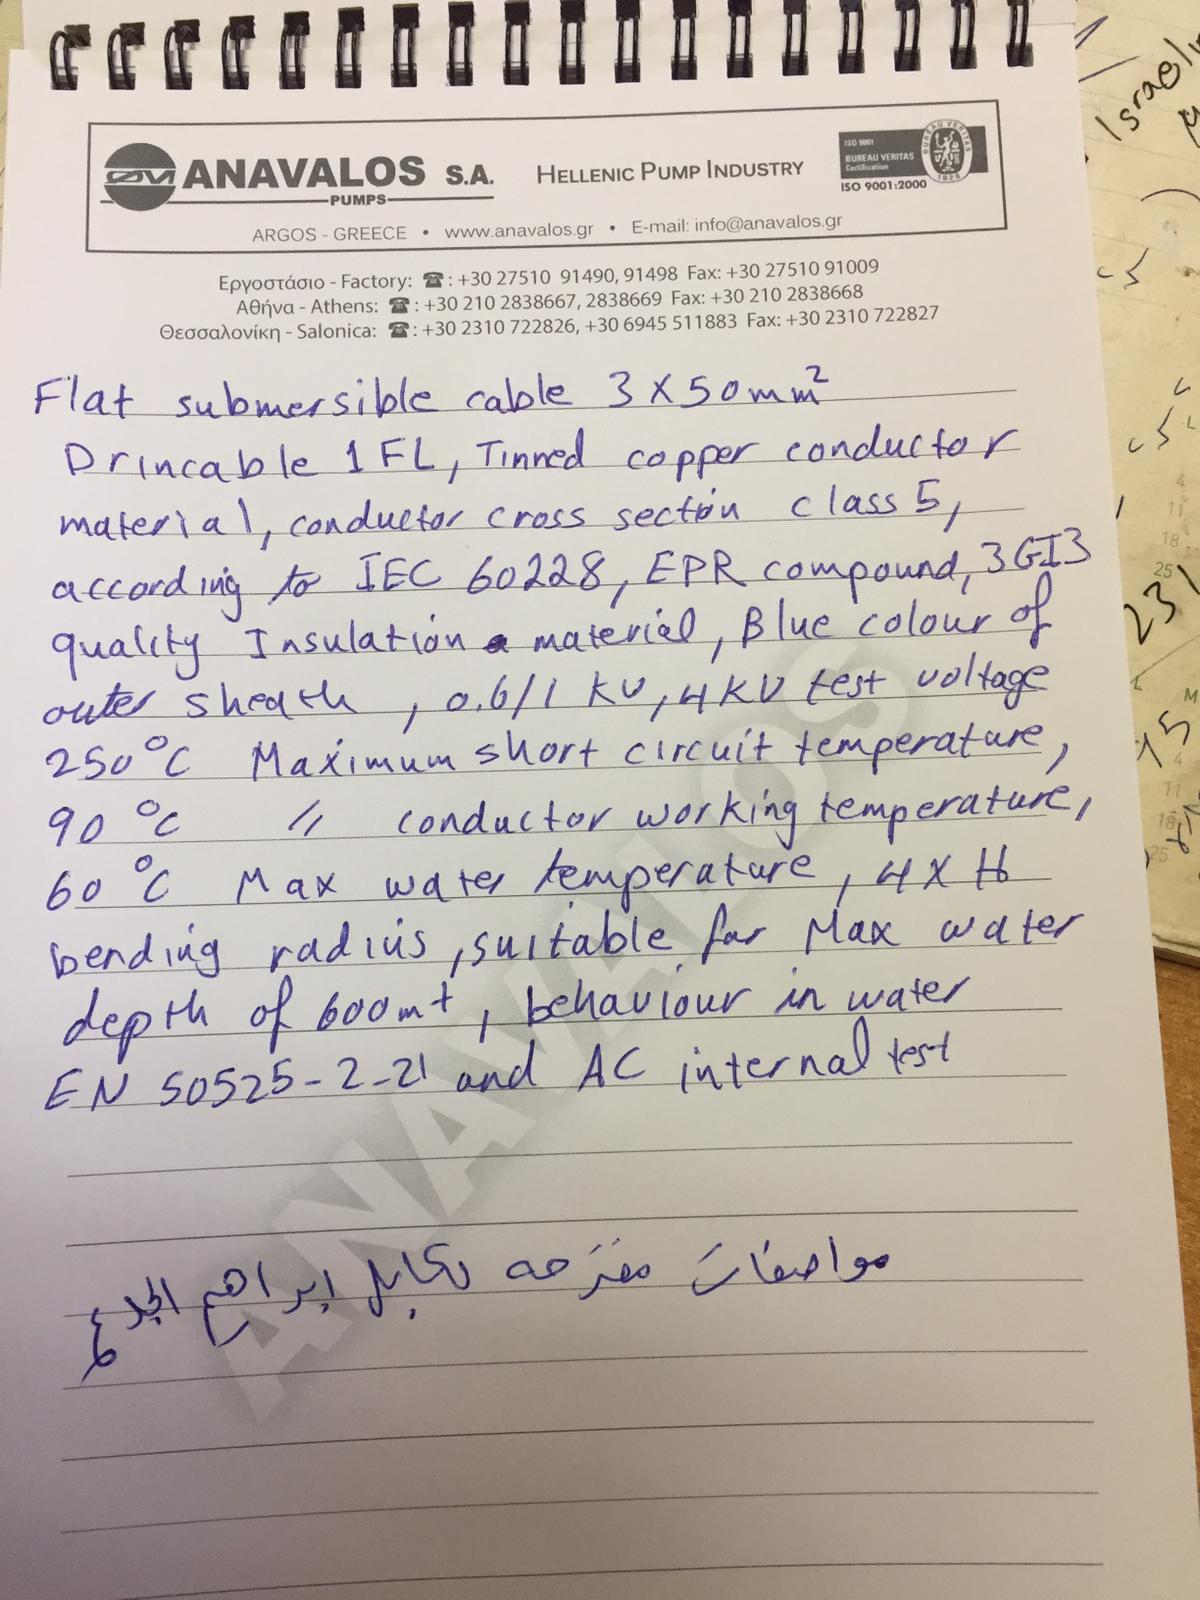 ANAVALOS S.A.
PUMPS
HELLENIC PUMP INDUSTRY
ISO 9001
BUREAU VERITAS
Certification
BUREAU VERITAS
1828
ISO 9001:2000
ARGOS - GREECE • www.anavalos.gr • E-mail: info@anavalos.gr
Εργοστάσιο - Factory: ☎: +30 27510 91490, 91498 Fax: +30 27510 91009
Αθήνα - Athens: ☎: +30 210 2838667, 2838669 Fax: +30 210 2838668
Θεσσαλονίκη - Salonica: ☎: +30 2310 722826, +30 6945 511883 Fax: +30 2310 722827
Flat submersible cable 3 X 50mm²
Drincable 1FL, Tinned copper conductor
material, conductor cross section class 5,
according to IEC 60228, EPR compound, 3GI3
quality Insulation material, Blue colour of
outer sheath, 0.6/1 KV, 4KV test voltage
250°C Maximum short circuit temperature,
90 °C 〃 conductor working temperature,
60 °C Max water temperature, 4 X H
bending radius, suitable for Max water
depth of 600mt, behaviour in water
EN 50525-2-21 and AC internal test
مواصفات مقترحه لكابل ابراهيم الجدع
ANAVALOS
ANAVALOS
Israeli
231